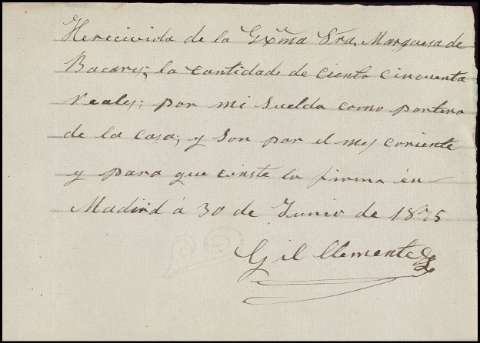 Herecivida de la Exma Sra Marquesa de
Bacares, la cantidade de ciento cincuenta
reales; por mi suelda como portero
de la casa; y son por el mes coriente
y para que conste la firma én
Madrid á 30 de Junio de 1875
Gil Clemente